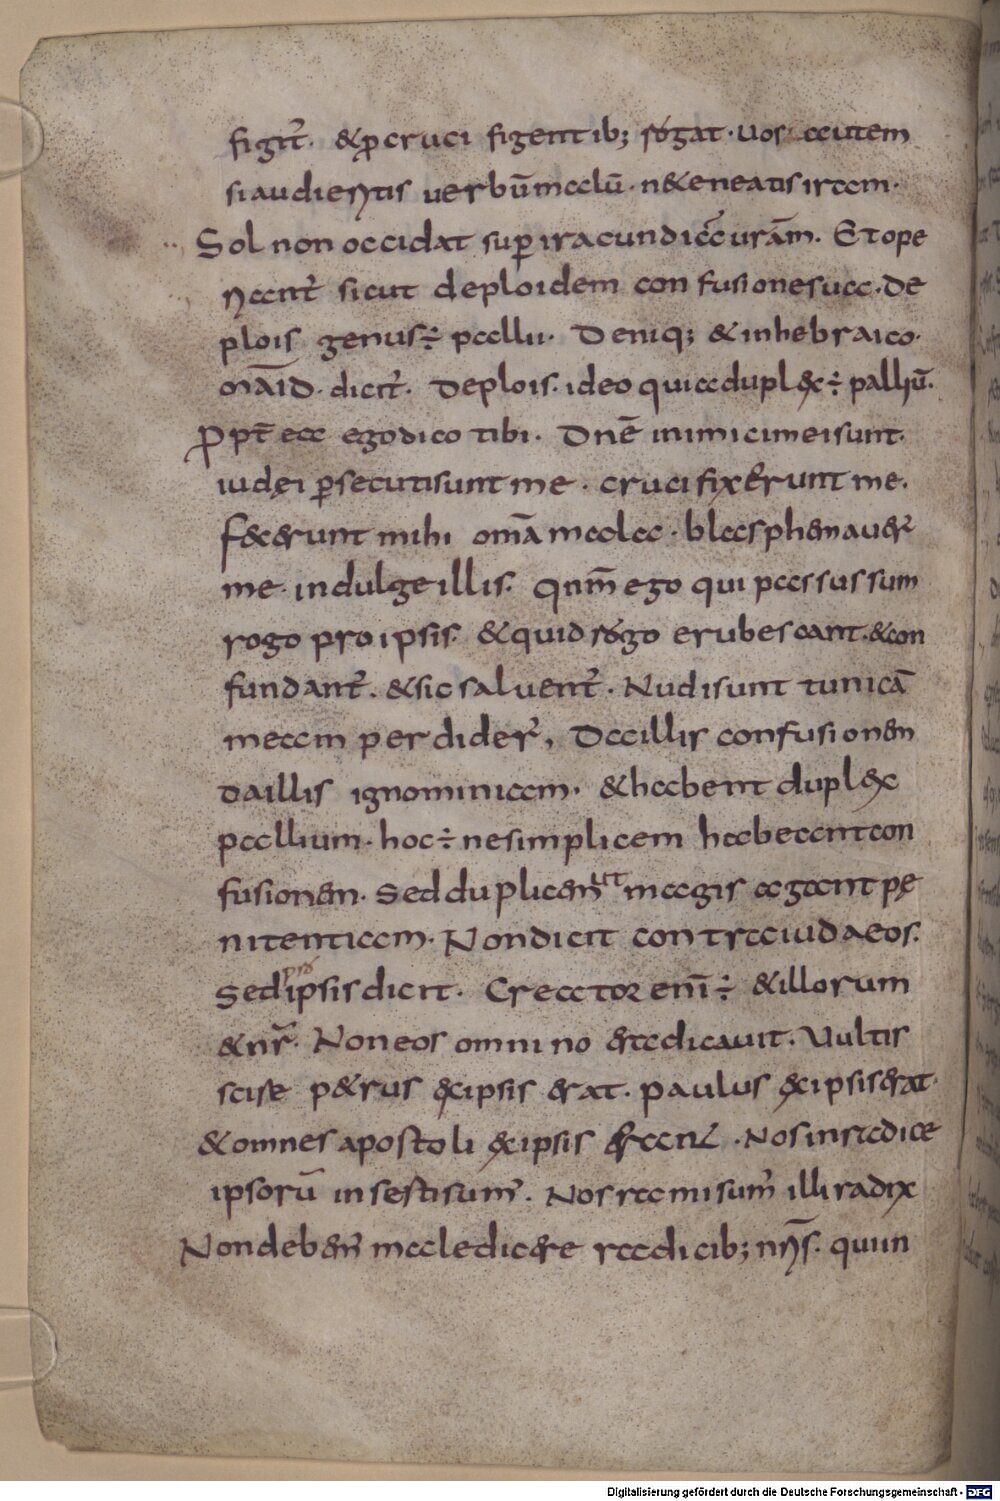 figit᷑. & ꝓ cruci figentib; rogat. uos autem
si audientis uerbū malū. n& eneatis iram.
Sol non occidat suꝑ iracundiā urām. Et ope
riant᷑ sicut deploidem confusione sua. de
plois genus ÷ pallii. Deniq; & inhebraico.
māid. dicit᷑. deplois. ideo quia duplęx ÷ palliū.
Propt̄ ea ego dico tibi. Dnē inimici mei sunt.
iudęi ꝑsecuti sunt me. crucifixerunt me.
fecerunt mihi omā mala. blasphemauer᷑
me. indulge illis. Qnm̄ ego qui passus sum
rogo pro ipsis. & quid rogo erubescant. & con
fundant᷑. & sic saluent᷑. Nudi sunt tunicā
meam perdider᷑, Da illis confusionem
da illis ignominiam. & habent duplęx
pallium. hoc ÷ ne simplicem habeant con
fusionem. Sed duplicem ut magis agant pę
nitentiam. Non dicit contra iudaeos.
Sed pro ipsis dicit. Creator enī ÷ & illorum
& nr̄. Non eos omnino eradicauit. Vultis
scire p&rus ęx ipsis erat. paulus ęx ipsis erat.
& omnes apostoli ęx ipsis erant. Nos in radice
ipsorū inserti sum᷑. Nos rami sum᷑ illi radix
Non debem᷑ maledicere radicib; nr̄is. qui in
Digitalisierung gefördert durch die Deutsche Forschungsgemeinschaft - DFG